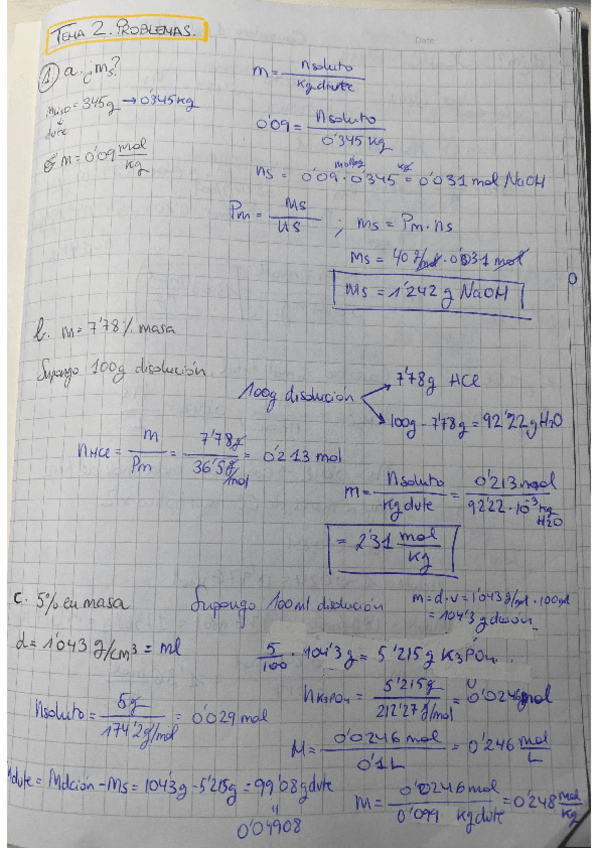 TEMA 2. PROBLEMAS.
Date
1 a. ¿ms?
m = nsoluto / kg dvute
= 345g → 0'345 kg
dvte
m = 0'09 mol/kg
0'09 = nsoluto / 0'345 kg
ns = 0'09 mol/kg · 0'345 kg = 0'031 mol NaOH
Pm = ms / ns ; ms = Pm · ns
ms = 40 g/mol · 0'031 mol
ms = 1'242 g NaOH
b. m = 7'78% masa
Supongo 100g disolución
100g disolución
7'78g HCl
100g - 7'78g = 92'22g H2O
nHCl = m / Pm = 7'78g / 36'5 g/mol = 0'213 mol
m = nsoluto / kg dvte = 0'213 mol / 92'22·10^-3 kg H2O
= 2'31 mol/kg
c. 5% en masa
Supongo 100ml disolución
m = d·v = 1'043 g/ml · 100ml
= 104'3 g dsoón
d = 1'043 g/cm³ = ml
5/100 · 104'3 g = 5'215g K3PO4
nsoluto = 5g / 174'2 g/mol = 0'029 mol
nK3PO4 = 5'215g / 212'27 g/mol = 0'0246 mol
M = 0'0246 mol / 0'1 L = 0'246 mol/L
mdvte = Mdción - Ms = 104'3g - 5'215g = 99'08 g dvte
0'04908
m = 0'0246 mol / 0'099 kg dvte = 0'248 mol/kg